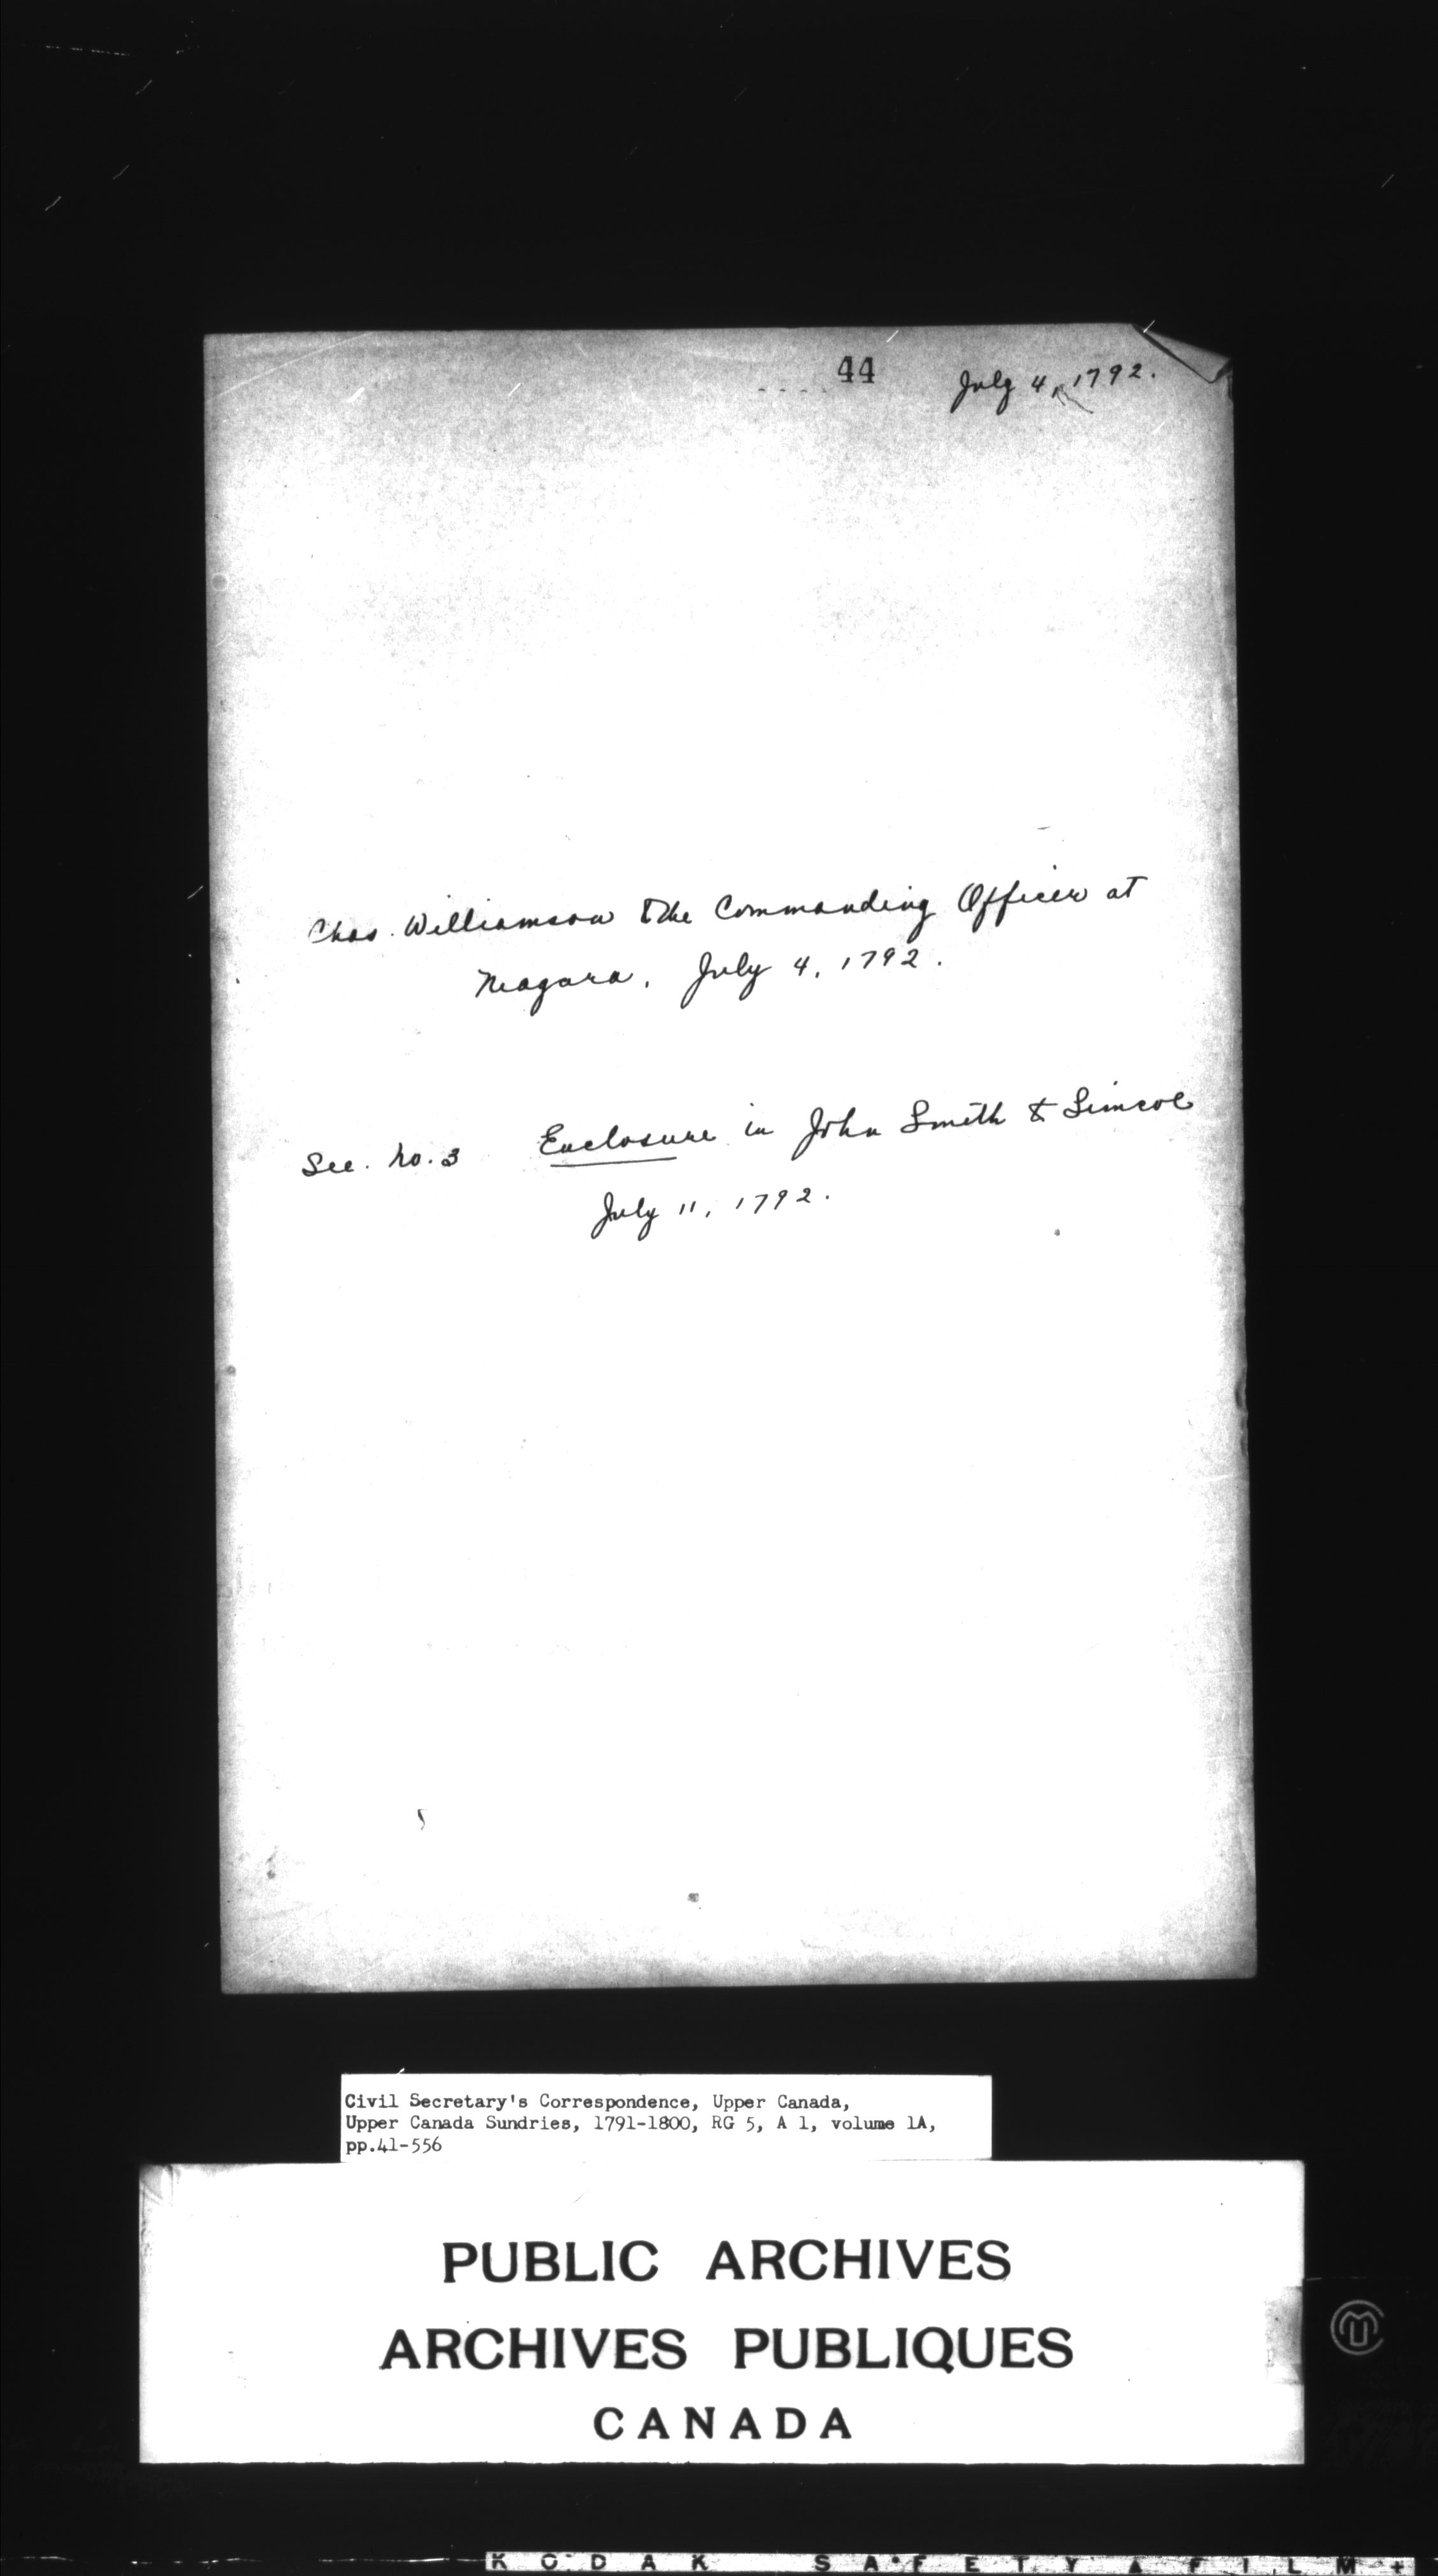 44
July 4, 1792.
Chas. Williamson to the Commanding Officer at
Niagara, July 4, 1792.
See. No. 3 Enclosure in John Smith to Simcoe
July 11, 1792.
Civil Secretary's Correspondence, Upper Canada,
Upper Canada Sundries, 1791-1800, RG 5, A 1, volume 1A,
pp.41-556
PUBLIC ARCHIVES
ARCHIVES PUBLIQUES
CANADA
KODAK SAFETY A FILM +